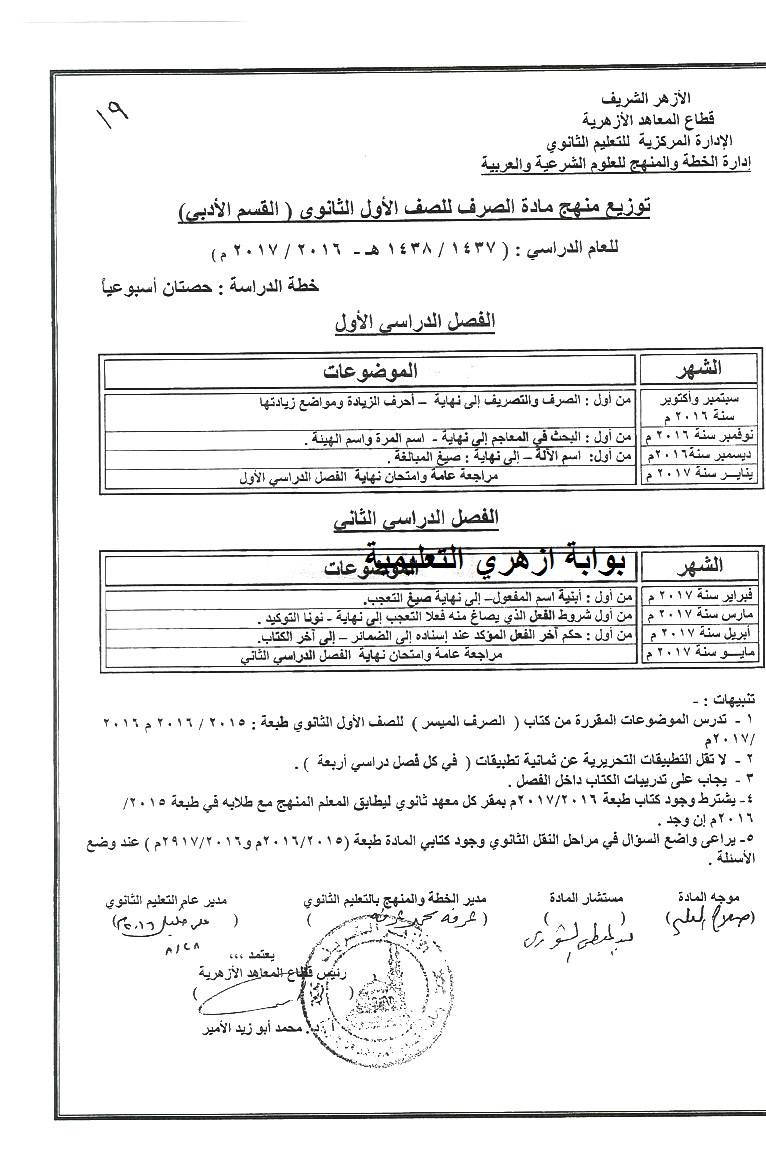 ١٩
الأزهر الشريف
قطاع المعاهد الأزهرية
الإدارة المركزية للتعليم الثانوي
إدارة الخطة والمنهج للعلوم الشرعية والعربية
توزيع منهج مادة الصرف للصف الأول الثانوى ( القسم الأدبي)
للعام الدراسي : ( ١٤٣٧ / ١٤٣٨ هـ - ٢٠١٦ / ٢٠١٧ م )
خطة الدراسة : حصتان أسبوعياً
الفصل الدراسي الأول
الشهر الموضوعات
سبتمبر وأكتوبر سنة ٢٠١٦ م من أول : الصرف والتصريف إلى نهاية – أحرف الزيادة ومواضع زيادتها
نوفمبر سنة ٢٠١٦ م من أول : البحث في المعاجم إلى نهاية - اسم المرة واسم الهيئة .
ديسمبر سنة٢٠١٦م من أول: اسم الآلة – إلى نهاية : صيغ المبالغة .
ينايـر سنة ٢٠١٧ م مراجعة عامة وامتحان نهاية الفصل الدراسي الأول
الفصل الدراسي الثاني
بوابة ازهري التعليمية
الشهر الموضوعات
فبراير سنة ٢٠١٧ م من أول : أبنية اسم المفعول– إلى نهاية صيغ التعجب.
مارس سنة ٢٠١٧ م من أول شروط الفعل الذي يصاغ منه فعلا التعجب إلى نهاية - نونا التوكيد .
أبريل سنة ٢٠١٧ م من أول : حكم آخر الفعل المؤكد عند إسناده إلى الضمائر – إلى آخر الكتاب.
مايـو سنة ٢٠١٧ م مراجعة عامة وامتحان نهاية الفصل الدراسي الثاني
تنبيهات : -
١ - تدرس الموضوعات المقررة من كتاب ( الصرف الميسر ) للصف الأول الثانوي طبعة : ٢٠١٥ / ٢٠١٦ م ٢٠١٦
/٢٠١٧م
٢ - لا تقل التطبيقات التحريرية عن ثمانية تطبيقات ( في كل فصل دراسي أربعة ) .
٣ - يجاب على تدريبات الكتاب داخل الفصل .
٤- يشترط وجود كتاب طبعة ٢٠١٧/٢٠١٦م بمقر كل معهد ثانوي ليطابق المعلم المنهج مع طلابه في طبعة ٢٠١٥/
٢٠١٦م إن وجد .
٥- يراعى واضع السؤال في مراحل النقل الثانوي وجود كتابي المادة طبعة (٢٠١٦/٢٠١٥م و٢٩١٧/٢٠١٦م ) عند وضع
الأسئلة .
موجه المادة مستشار المادة مدير الخطة والمنهج بالتعليم الثانوي مدير عام التعليم الثانوي
٢٠١٦م
٨/٢٨
يعتمد ،،،
رئيس قطاع المعاهد الأزهرية
أ . د . محمد أبو زيد الأمير